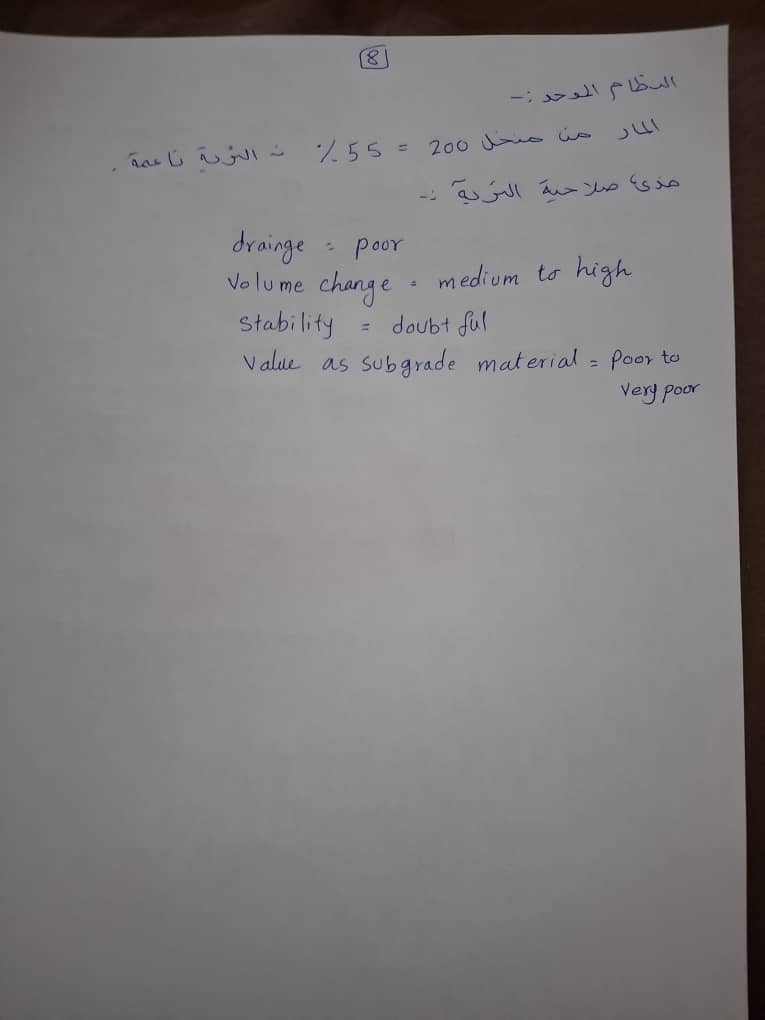 8
النظام الموحد :-
المار من منخل 200 = 55 % ∴ التربة ناعمة .
مدئ صلاحية التربة :-
drainge = poor
Volume change = medium to high
Stability = doubtful
Value as subgrade material = Poor to
Very poor